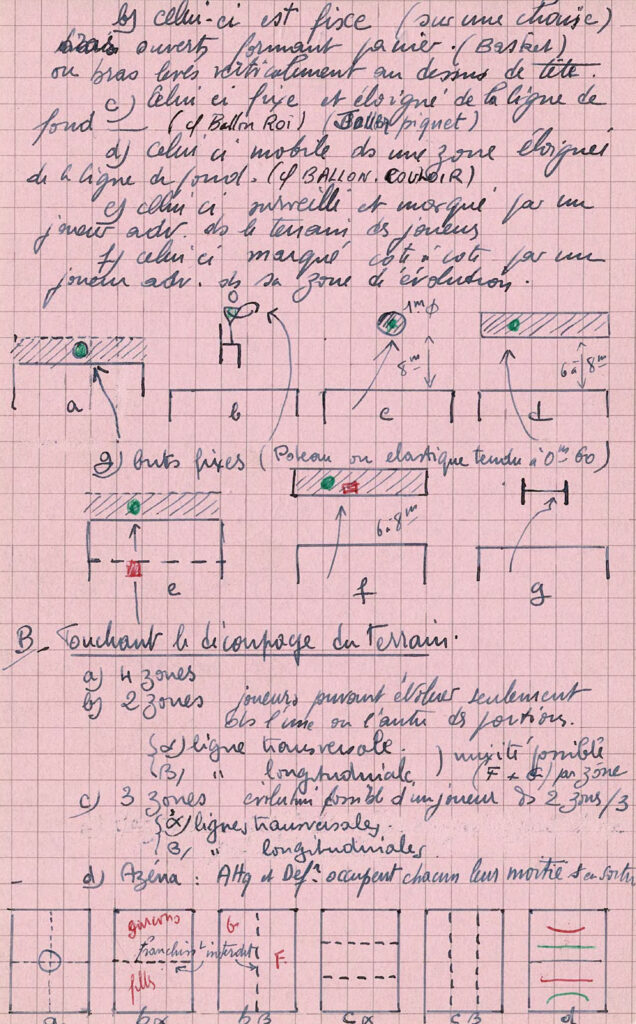 b) celui-ci est fixe (sur une chaise)
bras ouverts formant panier. (Basket)
ou bras levés verticalement au dessus de tête.
c) Celui ci fixe et éloigné de la ligne de
fond — (cf Ballon Roi) (Ballon piquet)
d) celui ci mobile ds une zone éloignée
de la ligne de fond. (cf BALLON. COULOIR)
e) celui ci surveillé et marqué par un
joueur adv. ds le terrain des joueurs
f) celui ci marqué côte à côte par un
joueur adv. ds sa zone d'évolution.
1m φ
8m
6 à 8m
a
b
c
d
g) buts fixes (Poteau ou elastique tendu à 0m60)
6 à 8m
e
f
g
B_ Touchant le découpage du terrain.
a) 4 zones
b) 2 zones joueurs pouvant évoluer seulement
ds l'une ou l'autre des portions.
{α) ligne transversale.
{β, " longitudinale ) mixité possible
(F + G) par zone
c) 3 zones évolution possible d'un joueur ds 2 zones/3
{α) lignes transversales.
{β, " longitudinales.
d) Azéna : Attq et Def. occupent chacun leur moitié
garçons
franchisst interdit
filles
G
F.
a
bα
bβ
cα
cβ
d